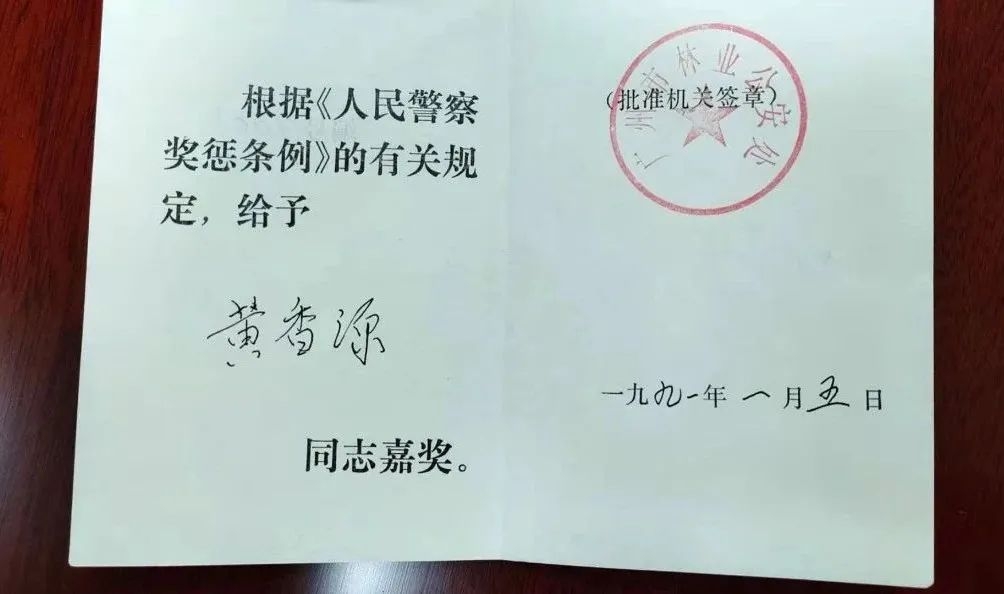 根据《人民警察
奖惩条例》的有关规
定，给予
黄香源
同志嘉奖。
广州市林业公安处
（批准机关签章）
一九九一年一月五日